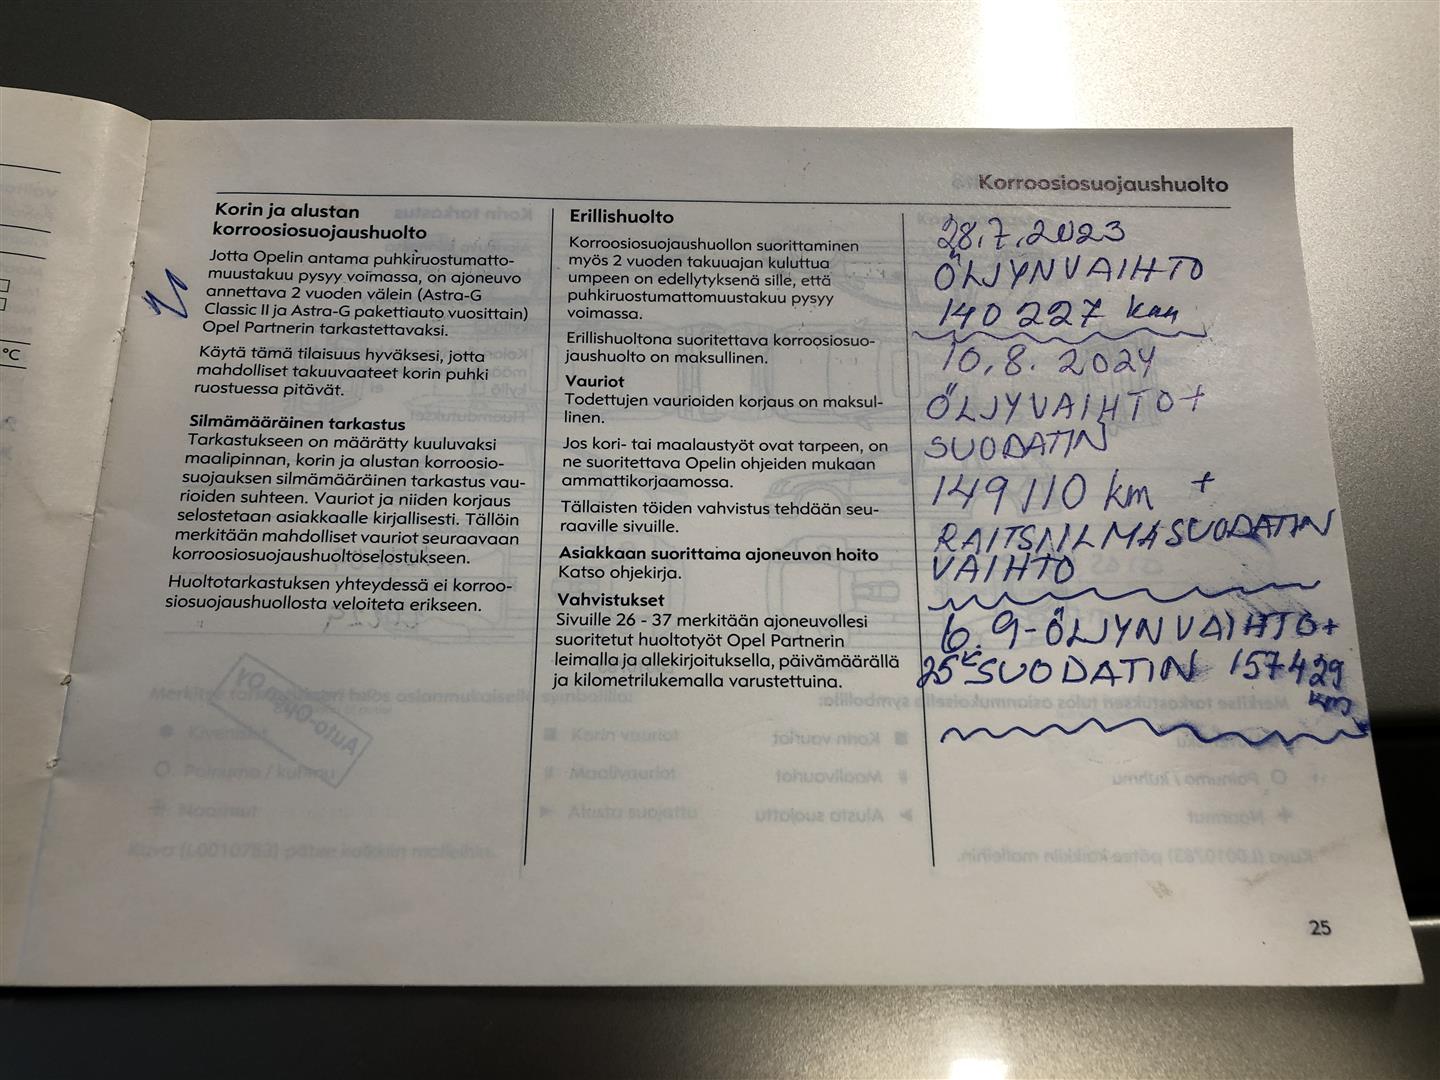 Korroosiosuojaushuolto
Korin ja alustan
korroosiosuojaushuolto
Jotta Opelin antama puhkiruostumatto-
muustakuu pysyy voimassa, on ajoneuvo
annettava 2 vuoden välein (Astra-G
Classic II ja Astra-G pakettiauto vuosittain)
Opel Partnerin tarkastettavaksi.
Käytä tämä tilaisuus hyväksesi, jotta
mahdolliset takuuvaateet korin puhki
ruostuessa pitävät.
Silmämääräinen tarkastus
Tarkastukseen on määrätty kuuluvaksi
maalipinnan, korin ja alustan korroosio-
suojauksen silmämääräinen tarkastus vau-
rioiden suhteen. Vauriot ja niiden korjaus
selostetaan asiakkaalle kirjallisesti. Tällöin
merkitään mahdolliset vauriot seuraavaan
korroosiosuojaushuoltoselostukseen.
Huoltotarkastuksen yhteydessä ei korroo-
siosuojaushuollosta veloiteta erikseen.
Erillishuolto
Korroosiosuojaushuollon suorittaminen
myös 2 vuoden takuuajan kuluttua
umpeen on edellytyksenä sille, että
puhkiruostumattomuustakuu pysyy
voimassa.
Erillishuoltona suoritettava korroosiosuo-
jaushuolto on maksullinen.
Vauriot
Todettujen vaurioiden korjaus on maksul-
linen.
Jos kori- tai maalaustyöt ovat tarpeen, on
ne suoritettava Opelin ohjeiden mukaan
ammattikorjaamossa.
Tällaisten töiden vahvistus tehdään seu-
raaville sivuille.
Asiakkaan suorittama ajoneuvon hoito
Katso ohjekirja.
Vahvistukset
Sivuille 26 - 37 merkitään ajoneuvollesi
suoritetut huoltotyöt Opel Partnerin
leimalla ja allekirjoituksella, päivämäärällä
ja kilometrilukemalla varustettuina.
28.7.2023
ÖLJYNVAIHTO
140 227 km
10.8.2024
ÖLJYVAIHTO +
SUODATIN
149110 km +
RAITSNILMASUODATIN
VAIHTO
6.9-ÖLJYNVAIHTO+
25 SUODATIN 157429
km
25